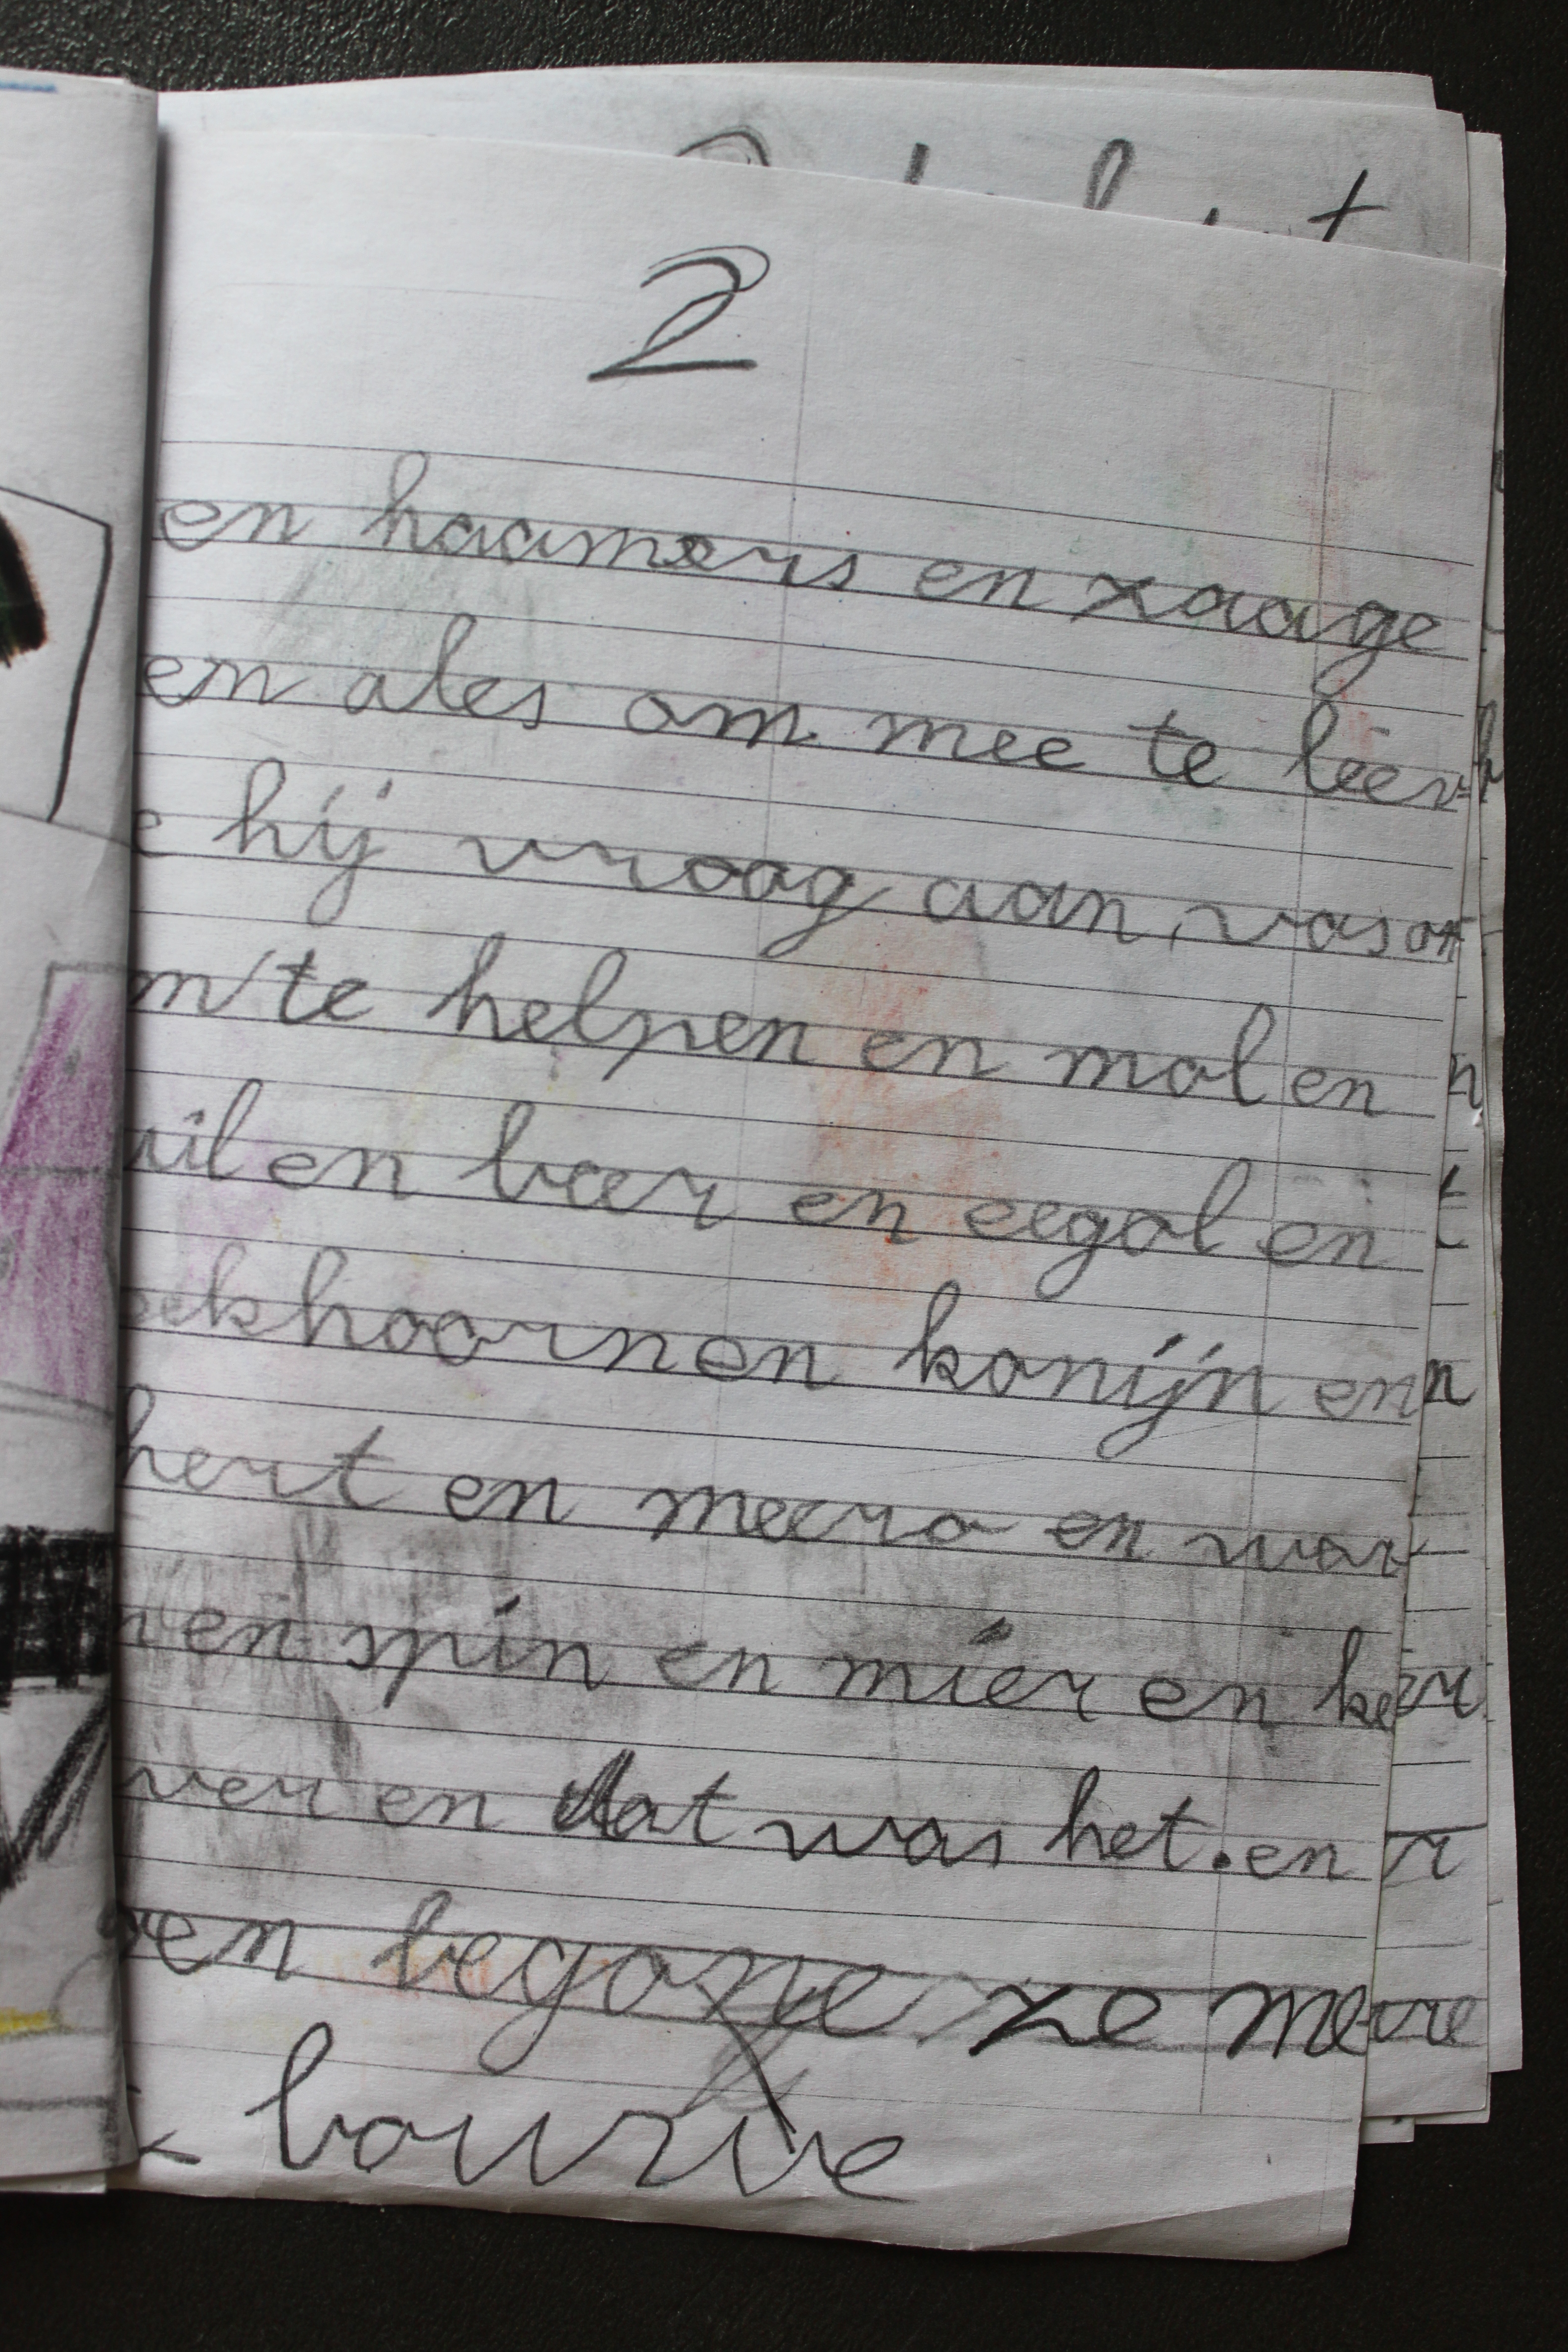 2
en haamers en zaage
en ales om mee te
hij vroog aan vos
te helpen en mol en
uil en beer en eegol en
eekhoorn en konijn en
hert en meero en wor
en spin en mier en ke
ver en dat was het. en
en begone ze me
bouwe